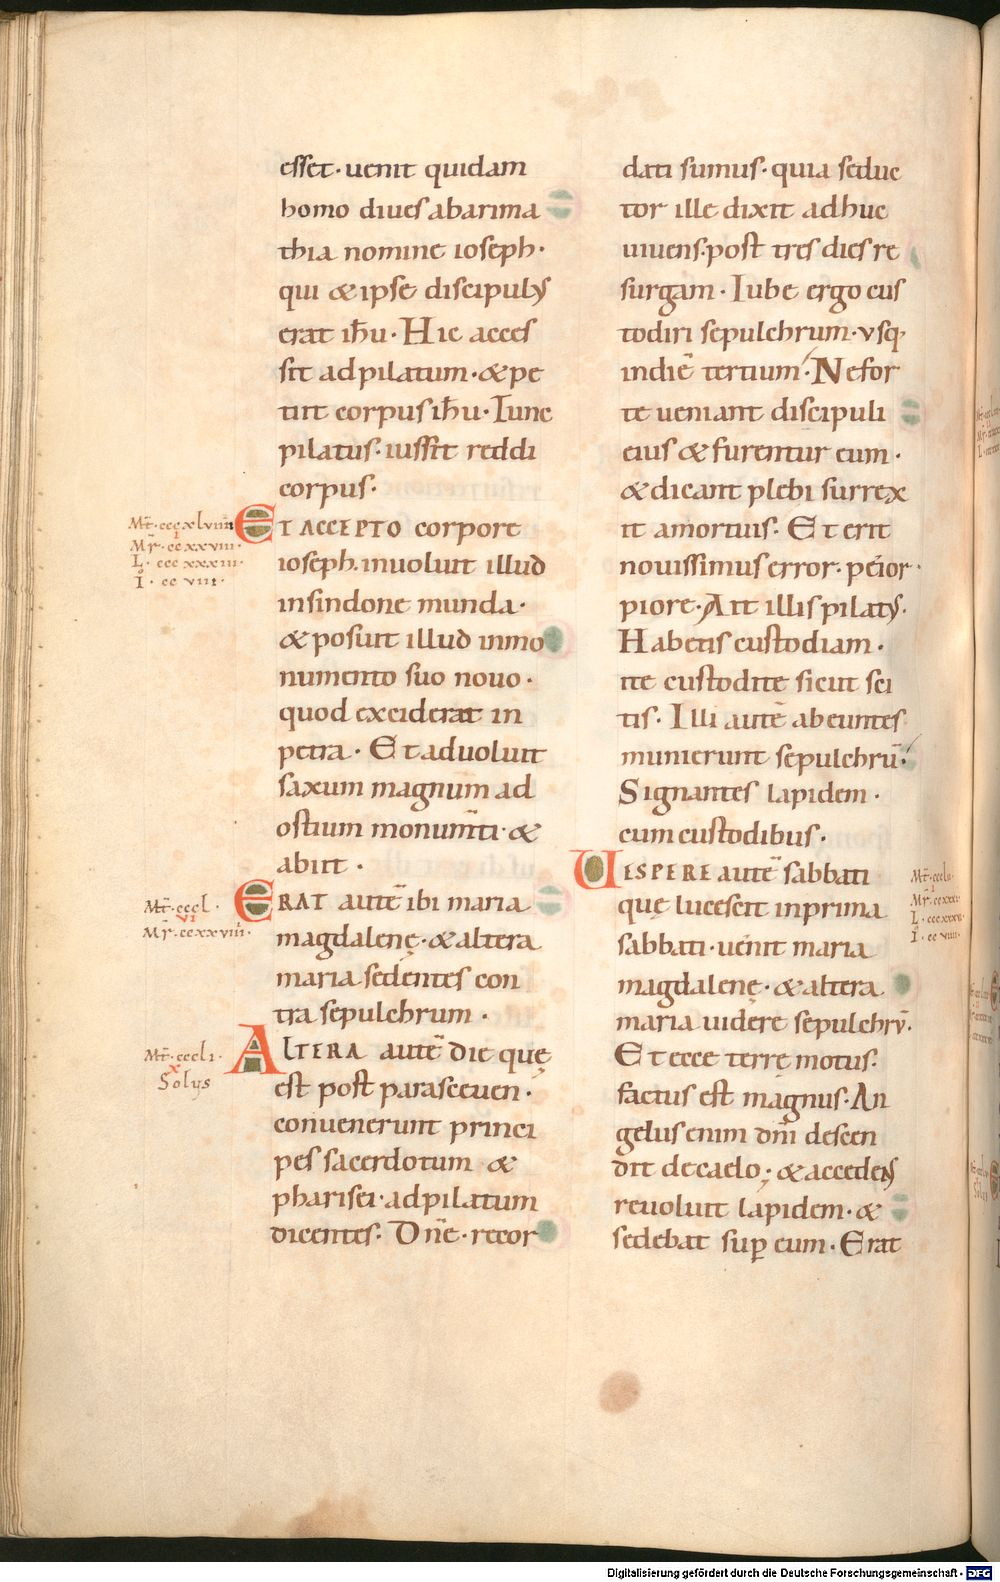 esset· uenit quidam
homo diues abarima
thia nomine ioseph·
qui & ipse discipulus
erat ihu· Hic acces
sit adpilatum· & pe
tiit corpus ihu· Tunc
pilatus· iussit reddi
corpus·
Mt· cccxlviiii
Mr· ccxxviii·
L· cccxxxiii·
I· ccviii·
ET ACCEPTO corpore
ioseph· inuoluit illud
insindone munda·
& posuit illud inmo
numento suo nouo·
quod exciderat in
petra· Et aduoluit
saxum magnum ad
ostium monumti· &
abiit·
Mt· cccl·
vi
Mr· ccxxviiii·
ERAT autē ibi maria
magdalenę· & altera
maria sedentes con
tra sepulchrum·
Mt· cccli·
x
Solus
ALTERA autē die quę
est post parasceuen·
conuenerunt princi
pes sacerdotum &
pharisei· adpilatum
dicentes· Dn̄e· recor
dati sumus· quia seduc
tor ille dixit adhuc
uiuens· post tres dies re
surgam· Iube ergo cus
todiri sepulchrum· vsq·
indiē tertium· Nefor
te ueniant discipuli
eius & furentur eum·
& dicant plebi surrex
it amortuis· Et erit
nouissimus error· peior
piore· Ait illis pilatus·
Habetis custodiam·
ite custodite sicut sci
tis· Illi autē abeuntes
munierunt sepulchrū·
Signantes lapidem·
cum custodibus·
UESPERE autē sabbati
quę lucescit inprima
sabbati· uenit maria
magdalenę· & altera
maria uidere sepulchrū·
Et ecce terrę motus·
factus est magnus· An
gelus enim dn̄i descen
dit de caelo· & accedens
reuoluit lapidem· &
sedebat sup eum· Erat
Digitalisierung gefördert durch die Deutsche Forschungsgemeinschaft - DFG